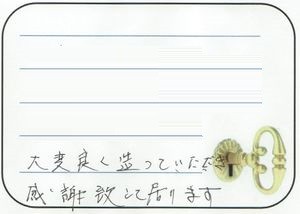 大変良く造っていただき
感謝致して居ります